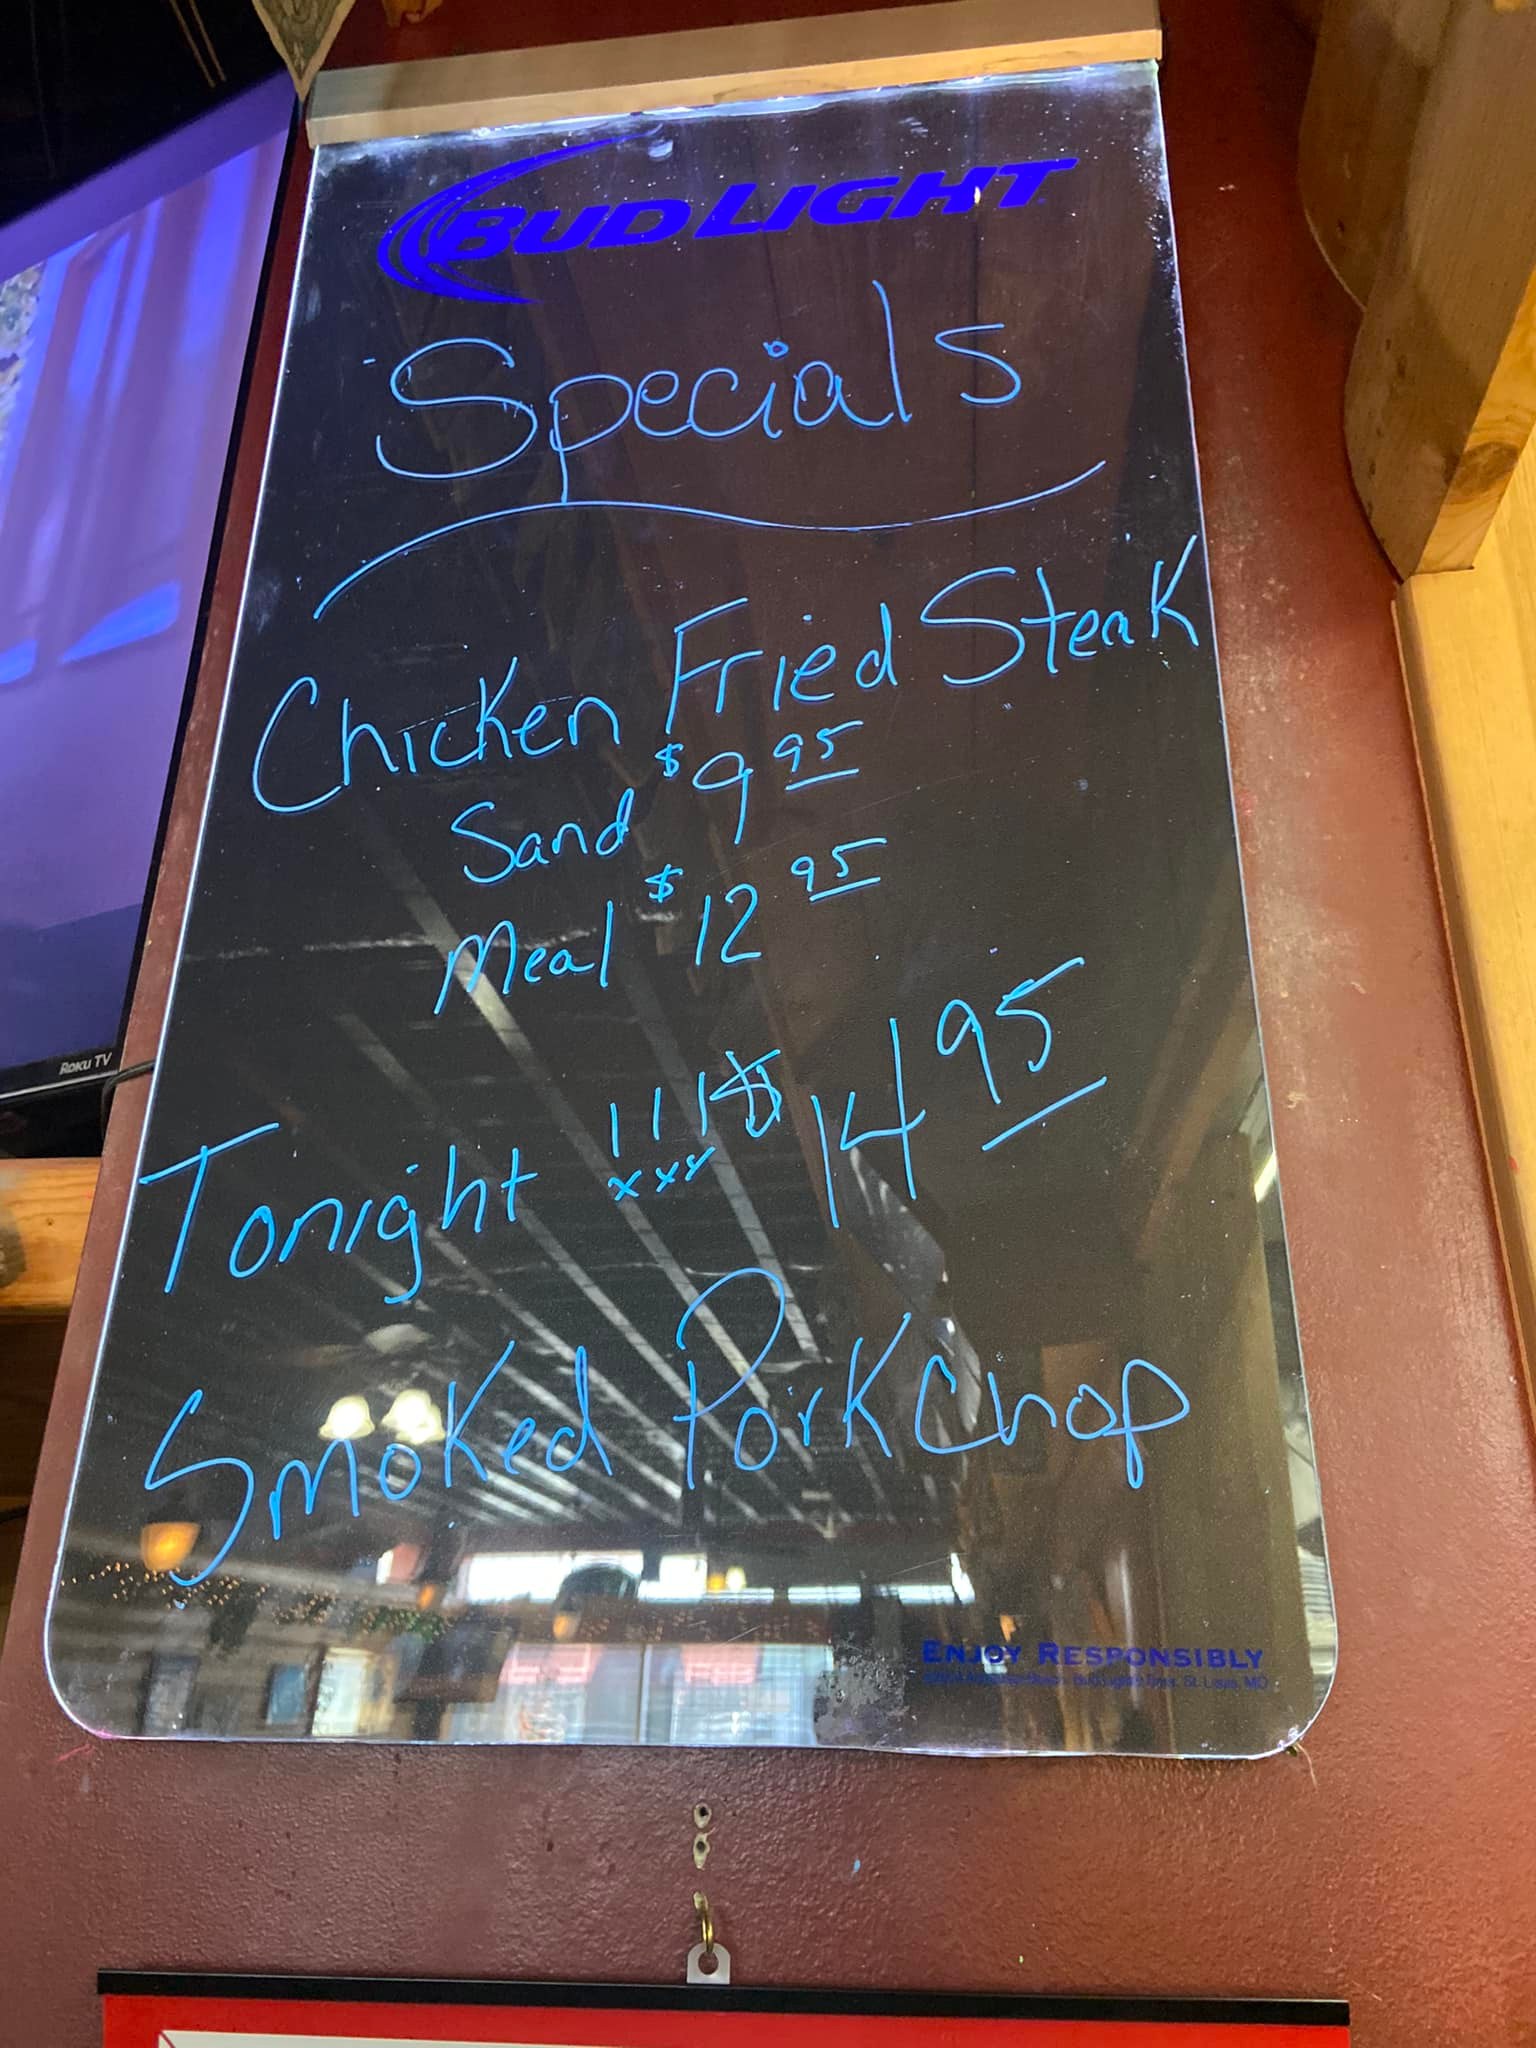 BUD LIGHT
Specials
Chicken Fried Steak
Sand $9 95
Meal $12 95
Tonight !!! $14 95
Smoked Pork Chop
ENJOY RESPONSIBLY
St. Louis, MO
Roku TV